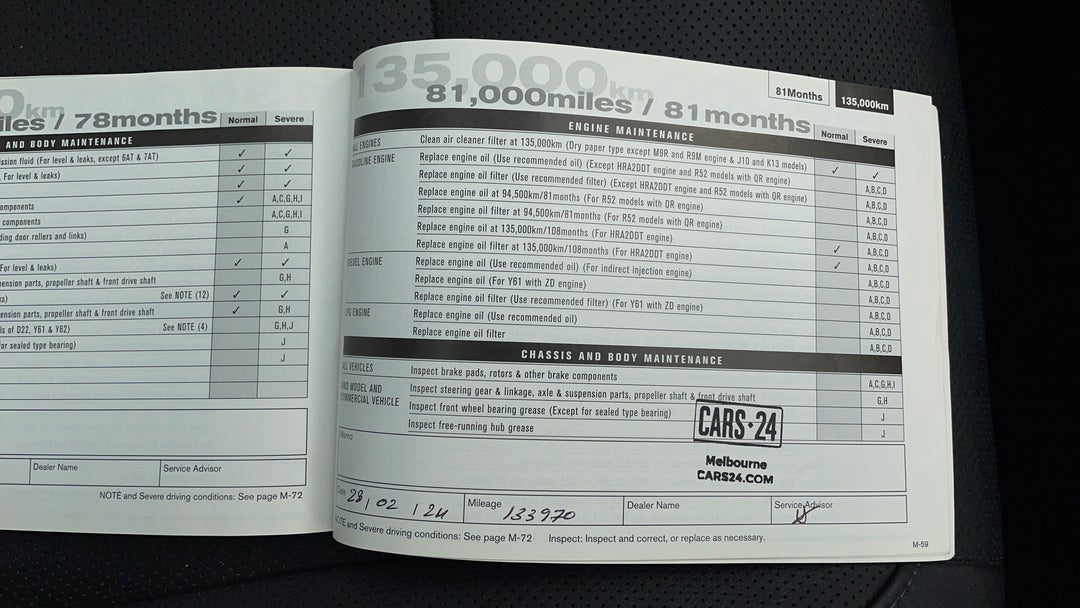 0km
iles / 78months
Normal
Severe
AND BODY MAINTENANCE
ssion fluid (For level & leaks, except 6AT & 7AT) ✓ ✓
, For level & leaks) ✓ ✓
✓ ✓
omponents ✓ A,C,G,H,I
components A,C,G,H,I
ding door rollers and links) G
A
For level & leaks) ✓ ✓
ension parts, propeller shaft & front drive shaft G,H
ks) See NOTE (12) ✓ ✓
ension parts, propeller shaft & front drive shaft ✓ G,H
ls of D22, Y61 & Y62) See NOTE (4) G,H,J
or sealed type bearing) J
J
Dealer Name
Service Advisor
NOTE and Severe driving conditions: See page M-72
135,000km
81,000miles / 81months
81Months
135,000km
ENGINE MAINTENANCE
Normal
Severe
ALL ENGINES Clean air cleaner filter at 135,000km (Dry paper type except M9R and R9M engine & J10 and K13 models) ✓ ✓
GASOLINE ENGINE Replace engine oil (Use recommended oil) (Except HRA2DDT engine and R52 models with QR engine) A,B,C,D
Replace engine oil filter (Use recommended filter) (Except HRA2DDT engine and R52 models with QR engine) A,B,C,D
Replace engine oil at 94,500km/81months (For R52 models with QR engine) A,B,C,D
Replace engine oil filter at 94,500km/81months (For R52 models with QR engine) A,B,C,D
Replace engine oil at 135,000km/108months (For HRA2DDT engine) ✓ A,B,C,D
Replace engine oil filter at 135,000km/108months (For HRA2DDT engine) ✓ A,B,C,D
DIESEL ENGINE Replace engine oil (Use recommended oil) (For indirect injection engine) A,B,C,D
Replace engine oil (For Y61 with ZD engine) A,B,C,D
Replace engine oil filter (Use recommended filter) (For Y61 with ZD engine) A,B,C,D
LPG ENGINE Replace engine oil (Use recommended oil) A,B,C,D
Replace engine oil filter A,B,C,D
CHASSIS AND BODY MAINTENANCE
ALL VEHICLES Inspect brake pads, rotors & other brake components A,C,G,H,I
4WD MODEL AND COMMERCIAL VEHICLE Inspect steering gear & linkage, axle & suspension parts, propeller shaft & front drive shaft G,H
Inspect front wheel bearing grease (Except for sealed type bearing) J
Inspect free-running hub grease J
Memo
CARS·24
Melbourne
CARS24.COM
Date 28/02/24
Mileage 133970
Dealer Name
Service Advisor
NOTE and Severe driving conditions: See page M-72 Inspect: Inspect and correct, or replace as necessary.
M-59